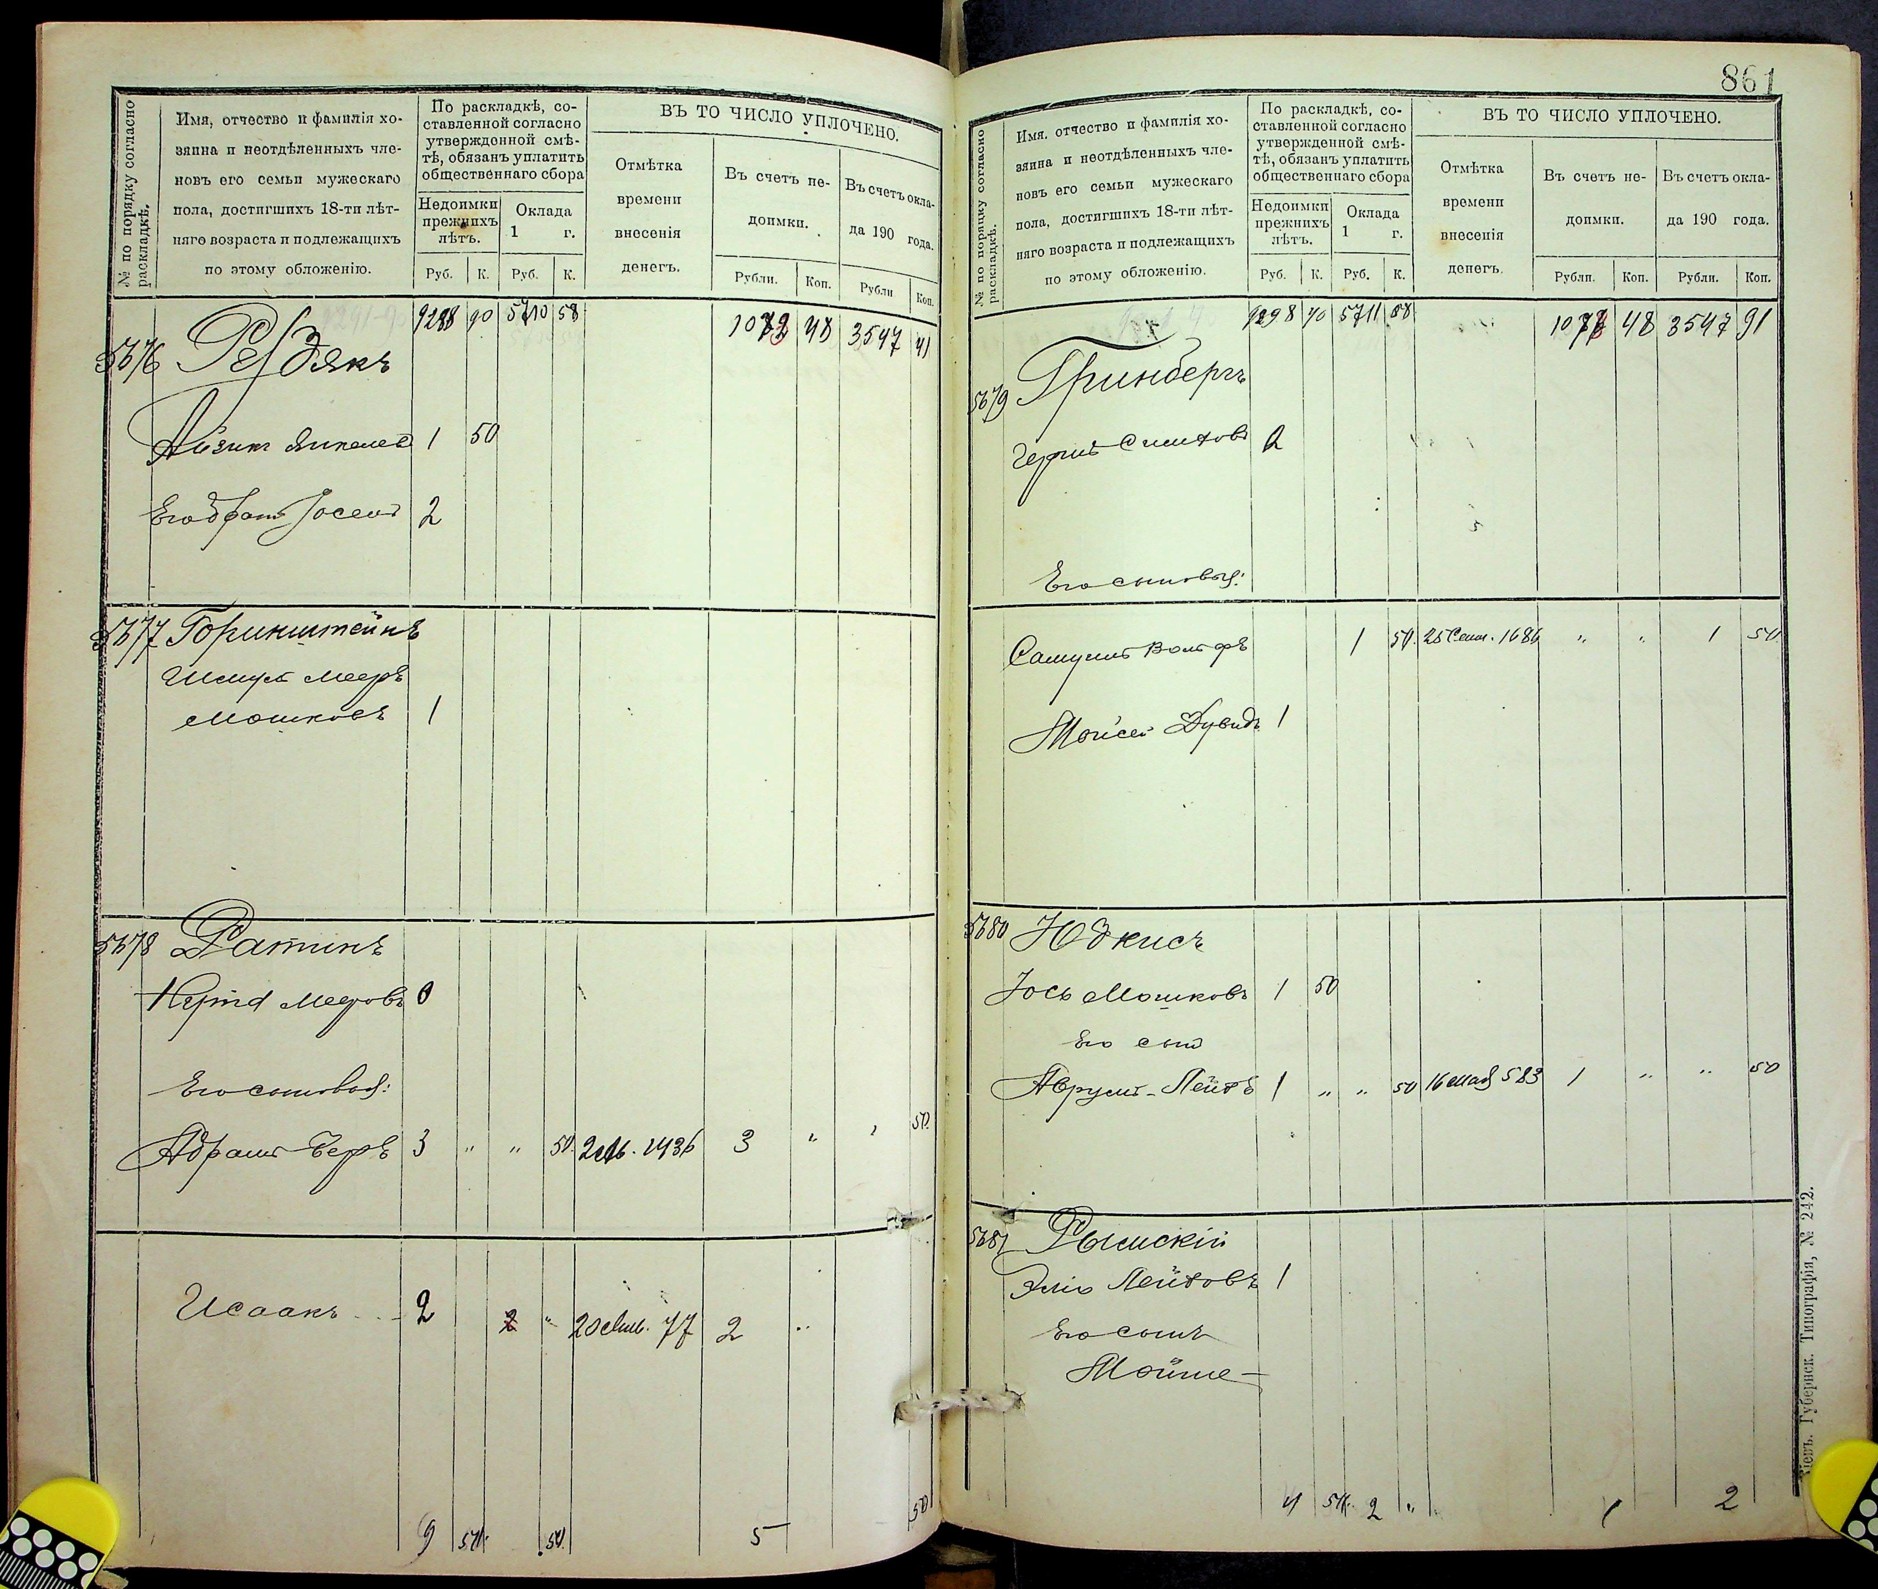 № по порядку согласно раскладкѣ.
Имя, отчество и фамилія хо-
зяина и неотдѣленныхъ чле-
новъ его семьи мужескаго
пола, достигшихъ 18-ти лѣт-
няго возраста и подлежащихъ
по этому обложенію.
По раскладкѣ, со-
ставленной согласно
утвержденной смѣ-
тѣ, обязанъ уплатить
общественнаго сбора
Недоимки
прежнихъ
лѣтъ.
Оклада
1 г.
Руб. К. Руб. К.
ВЪ ТО ЧИСЛО УПЛОЧЕНО.
Отмѣтка
времени
внесенія
денегъ.
Въ счетъ не-
доимки.
Рубли. Коп.
Въ счетъ окла-
да 190 года.
Рубли Коп.
9288 90 5710 58 48 3547 41
5676
Айзикъ 1 50
Его братъ Іосель 2
5677 Горинштейнъ
Шмуль Мееръ
Мошковъ 1
5678 Ратинъ
Мееровъ
Его сыновья:
Абрамъ-Беръ 3 " " 50. 3 " " 50.
Исаакъ 2 2 " 77 2 "
9 50. 50. 5 50
861
№ по порядку согласно раскладкѣ.
Имя, отчество и фамилія хо-
зяина и неотдѣленныхъ чле-
новъ его семьи мужескаго
пола, достигшихъ 18-ти лѣт-
няго возраста и подлежащихъ
по этому обложенію.
По раскладкѣ, со-
ставленной согласно
утвержденной смѣ-
тѣ, обязанъ уплатить
общественнаго сбора
Недоимки
прежнихъ
лѣтъ.
Оклада
1 г.
Руб. К. Руб. К.
ВЪ ТО ЧИСЛО УПЛОЧЕНО.
Отмѣтка
времени
внесенія
денегъ.
Въ счетъ не-
доимки.
Рубли. Коп.
Въ счетъ окла-
да 190 года.
Рубли. Коп.
5711 48 3547 91
5679 Гринбергъ
Гершъ 2
Его сыновья:
Самуилъ Вольфъ 1 50. 25 Сент. 1686 " " 1 50
Мойсей Дувидъ 1
5680 Юдкисъ
Іось Мошковъ 1 50
Его сынъ
Аврумъ-Лейбъ 1 " " 50 16 Мая 583 1 " " 50
5681 Рымскій
Эліо Лейбовъ 1
Его сынъ
Мойше —
4 50. 2 " 1 2
Кіевъ. Губернск. Типографія, № 242.